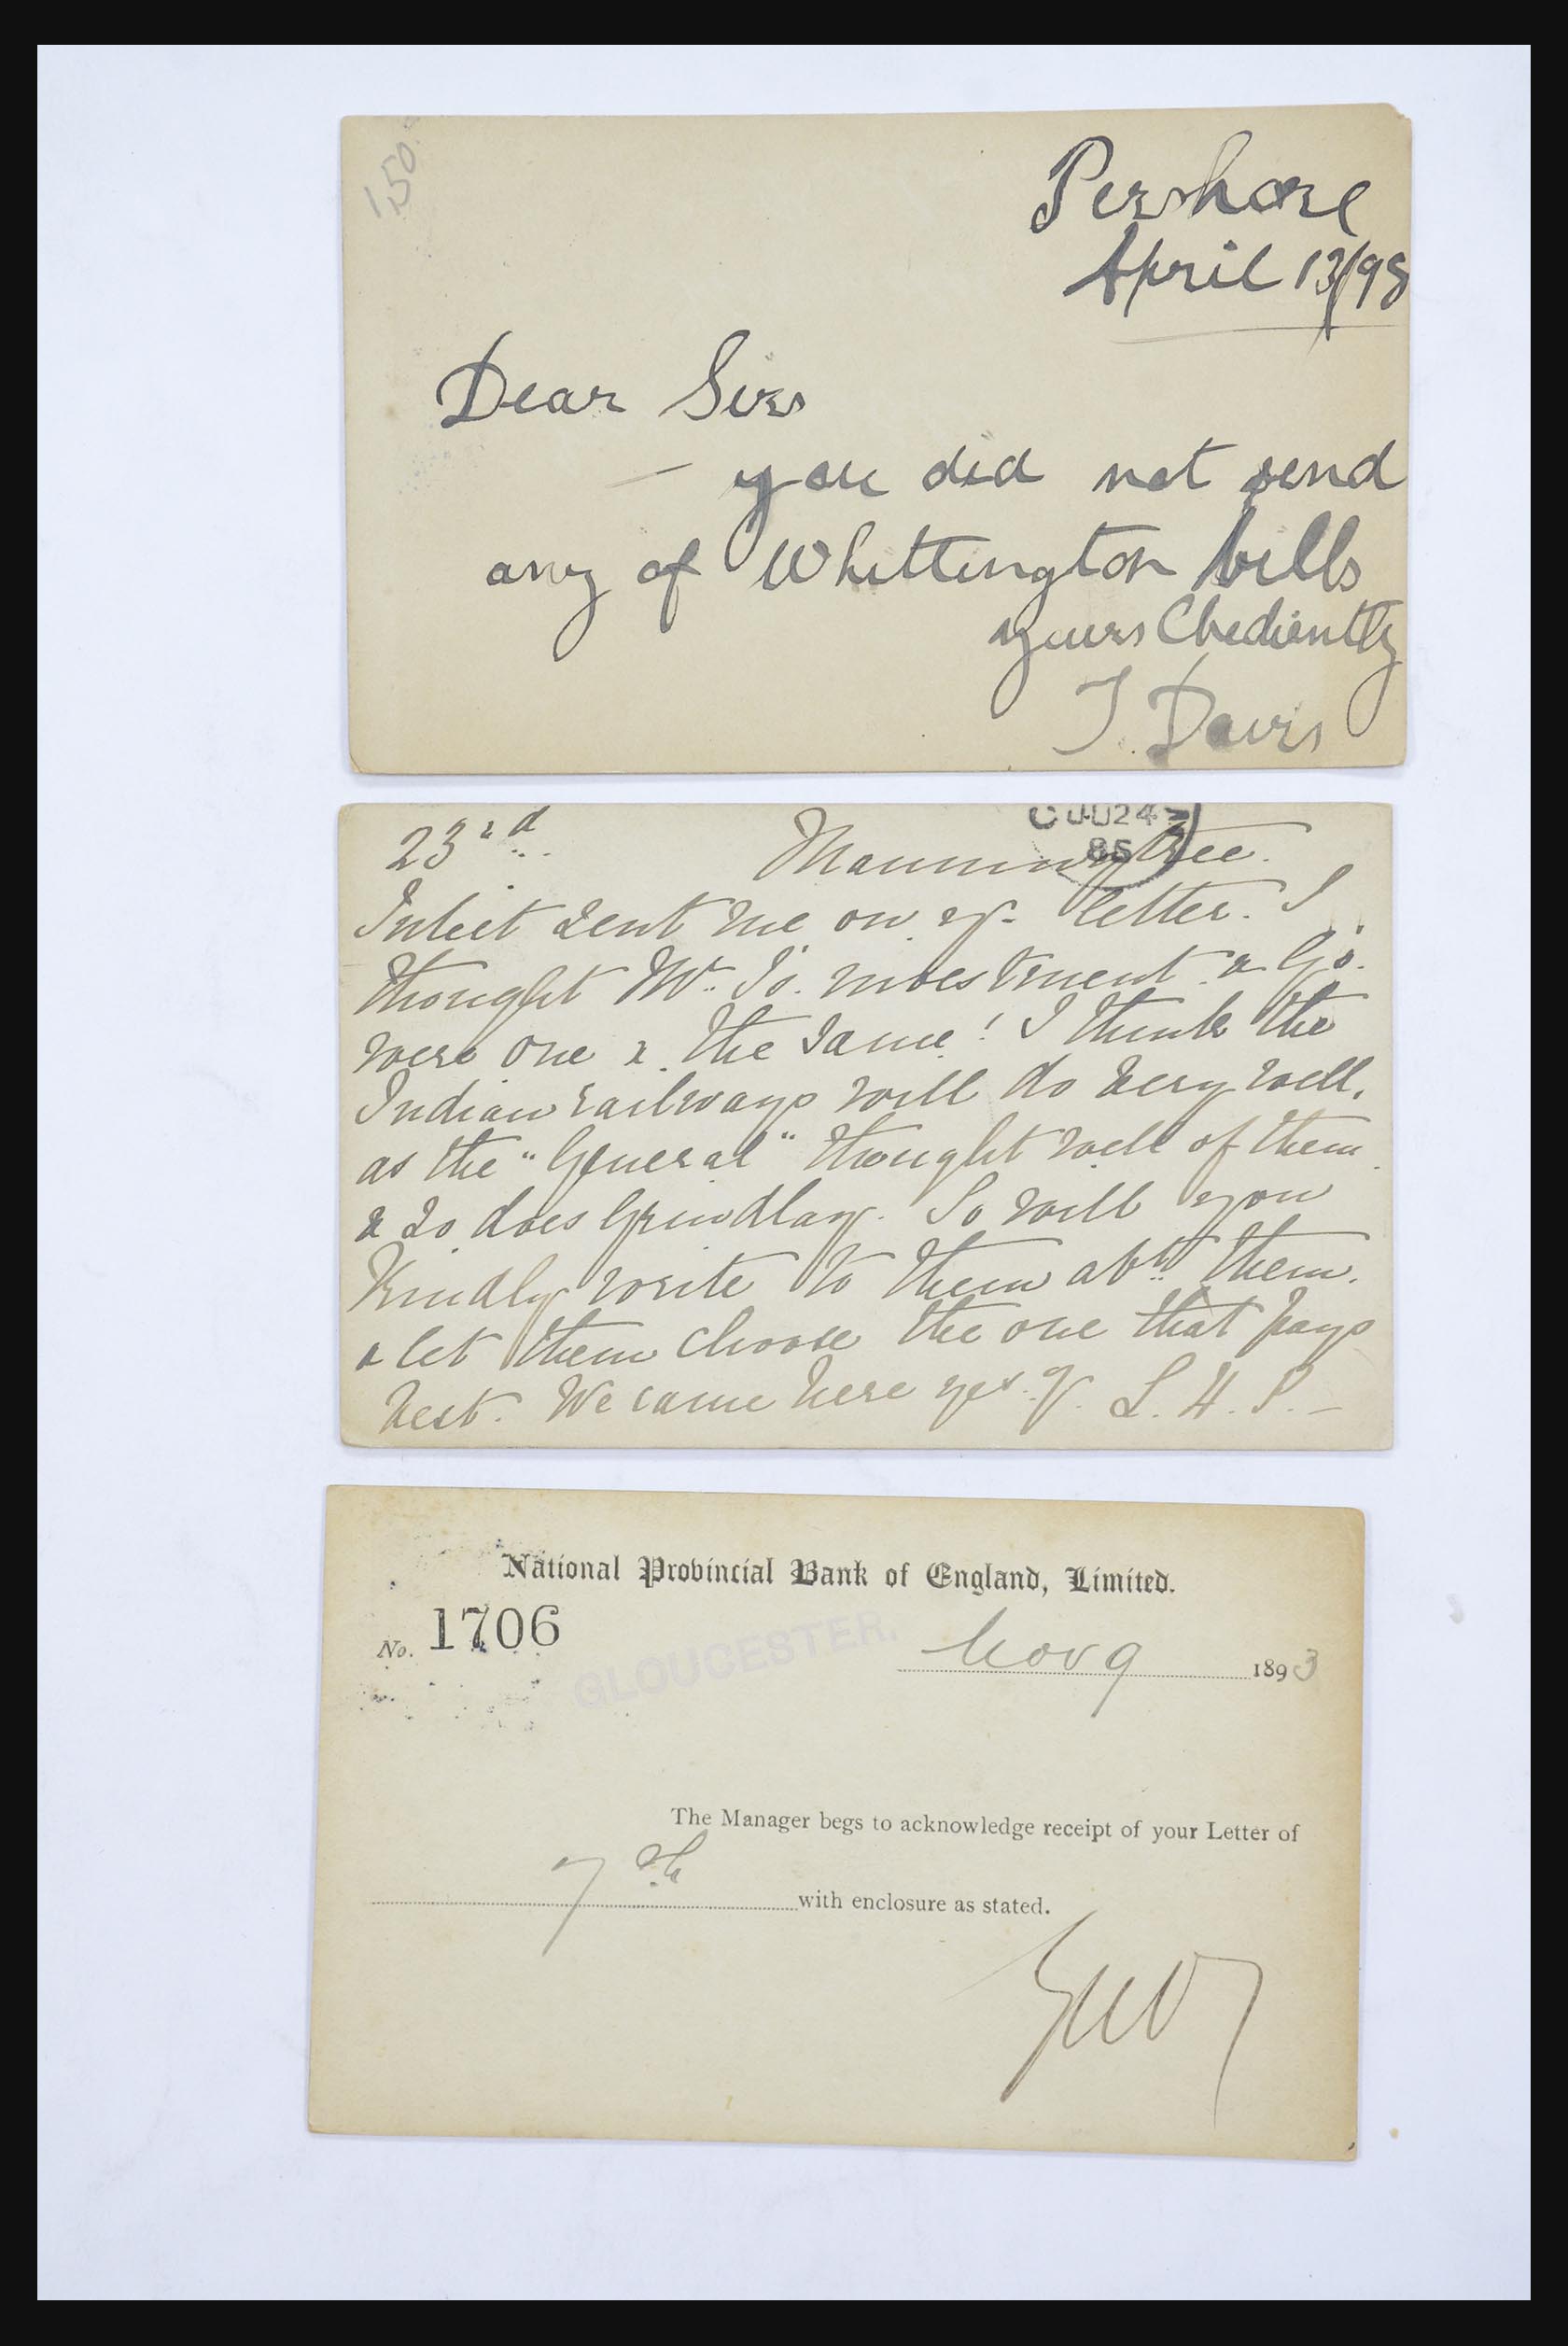 150
Pershore
April 13/98
Dear Sirs
— you did not send
any of Whittington bills
yours Obediently
T. Davis
JU 24
85
23rd Manningtree.
sent me on yr. letter. I
thought Mr. J's. investment & G's.
were one & the same! I think the
Indian railways will do very well,
as the "General" thought well of them
& so does Grindlay. So will you
kindly write to them abt. them.
& let them choose the one that pays
best. We came here L. H. P. —
National Provincial Bank of England, Limited.
No. 1706
GLOUCESTER.
Nov 9 1893
The Manager begs to acknowledge receipt of your Letter of
7th with enclosure as stated.